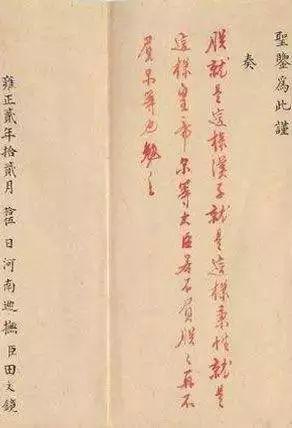 聖鑒為此謹
奏
朕就是這樣漢子就是這樣秉性就是
這樣皇帝尓等大臣若不負朕朕再不
負尓等也勉之
雍正貳年拾貳月 拾伍 日河南廵撫臣田文鏡